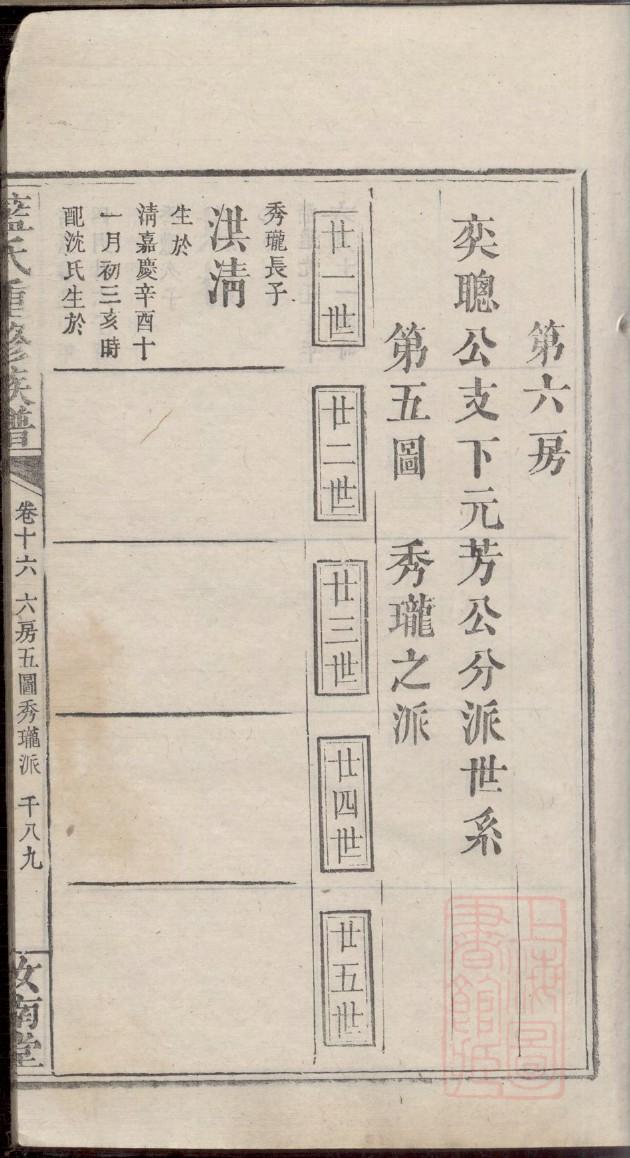 第六房
奕聰公支下元芳公分派世系
第五圖 秀瓏之派
廿一世
廿二世
廿三世
廿四世
廿五世
秀瓏長子
洪清
生於
清嘉慶辛酉十
一月初三亥時
配沈氏生於
藍氏重修族譜
卷十六 六房五圖秀瓏派 千八九
汝南堂
上海圖
書館藏